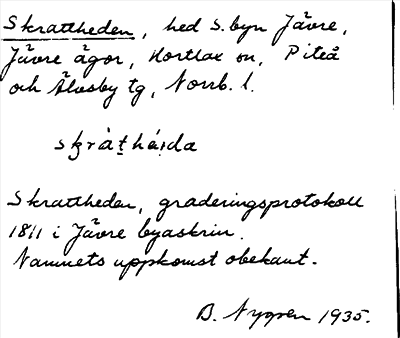 Skrattheden, hed S. byn Jävre,
Jävre ägor, Hortlax sn, Piteå
och Älvsby tg, Norrb. l.
skràt̠hé̀ıda
Skrattheden, graderingsprotokoll
1811 i Jävre byaskrin.
Namnets uppkomst obekant.
B. Nygren 1935.